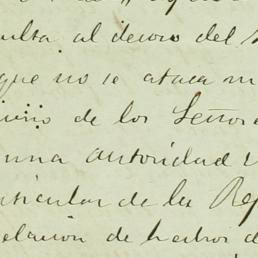 ulta al decoro del
que no se ataca
de los Señor
una autoridad
ticular de la Rep
elacion de hechos d